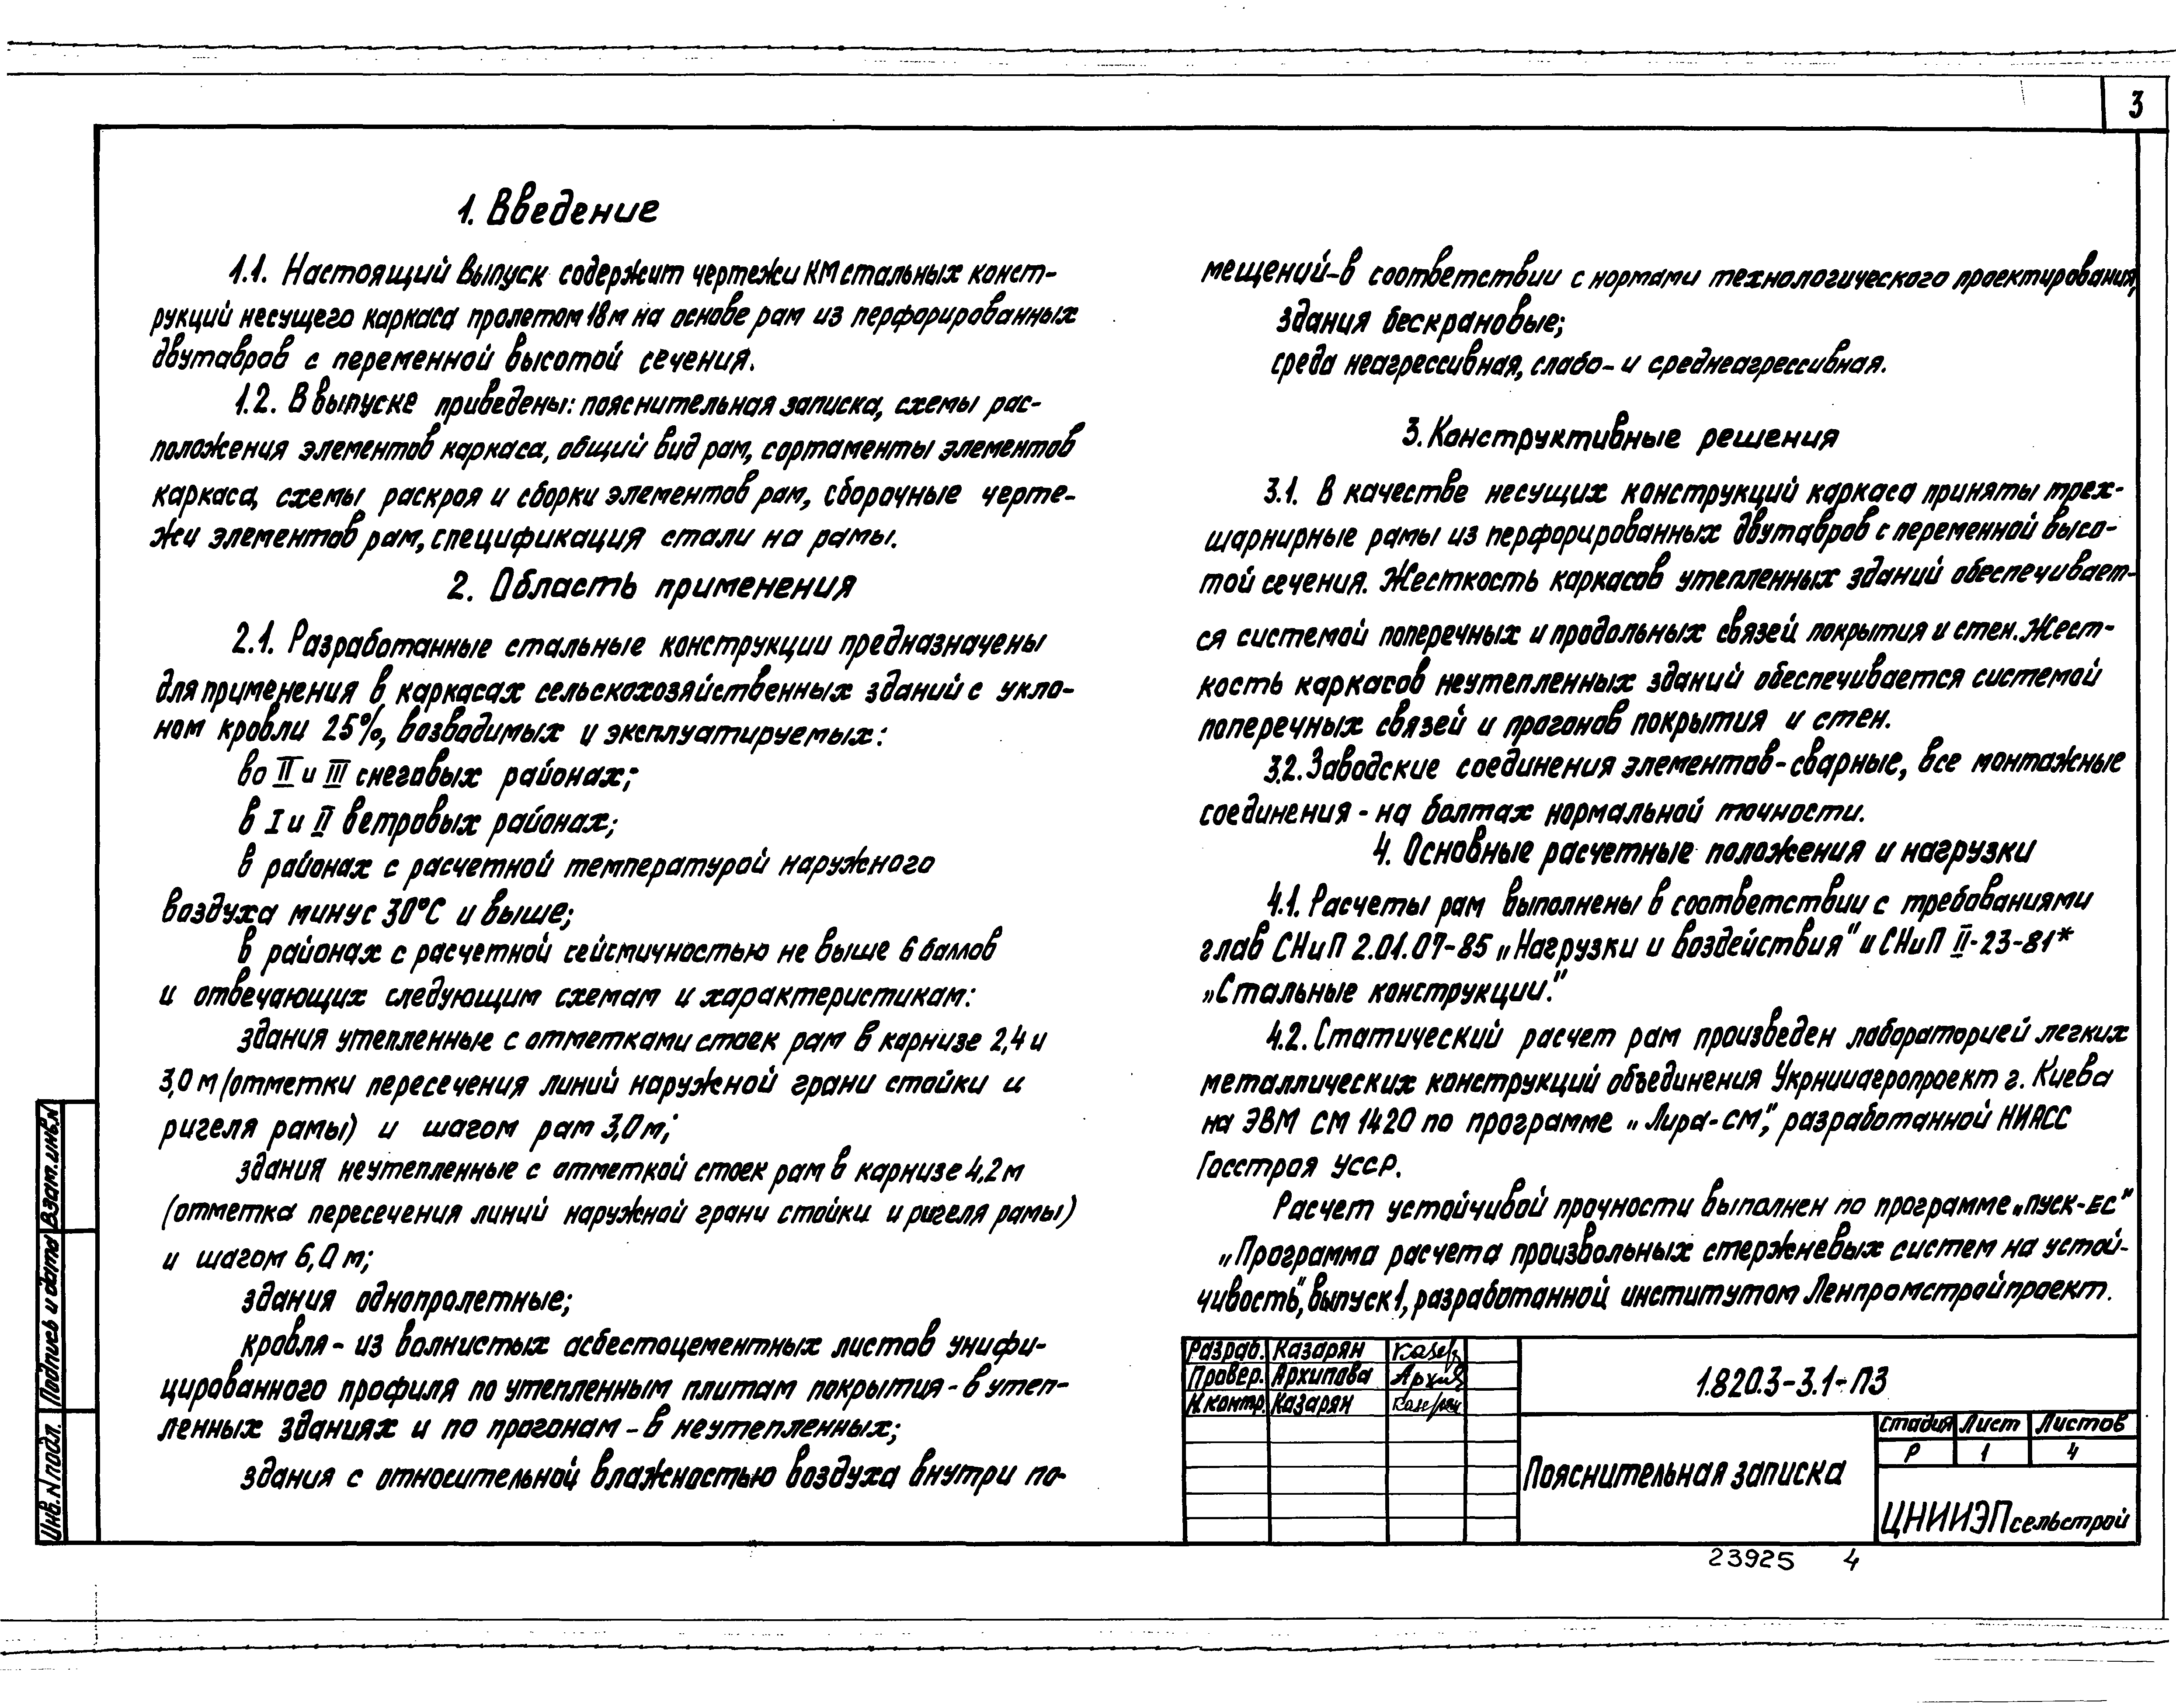 3
1. Введение
1.1. Настоящий выпуск содержит чертежи КМ стальных конст-
рукций несущего каркаса пролетом 18м на основе рам из перфорированных
двутавров с переменной высотой сечения.
1.2. В выпуске приведены: пояснительная записка, схемы рас-
положения элементов каркаса, общий вид рам, сортаменты элементов
каркаса, схемы раскроя и сборки элементов рам, сборочные черте-
жи элементов рам, спецификация стали на рамы.
2. Область применения
2.1. Разработанные стальные конструкции предназначены
для применения в каркасах сельскохозяйственных зданий с укло-
ном кровли 25%, возводимых и эксплуатируемых:
во II и III снеговых районах;
в I и II ветровых районах;
в районах с расчетной температурой наружного
воздуха минус 30°С и выше;
в районах с расчетной сейсмичностью не выше 6 баллов
и отвечающих следующим схемам и характеристикам:
здания утепленные с отметками стоек рам в карнизе 2,4 и
3,0 м (отметки пересечения линий наружной грани стойки и
ригеля рамы) и шагом рам 3,0м;
здания неутепленные с отметкой стоек рам в карнизе 4,2м
(отметка пересечения линий наружной грани стойки и ригеля рамы)
и шагом 6,0 м;
здания однопролетные;
кровля - из волнистых асбестоцементных листов унифи-
цированного профиля по утепленным плитам покрытия - в утеп-
ленных зданиях и по прогонам - в неутепленных;
здания с относительной влажностью воздуха внутри по-
мещений - в соответствии с нормами технологического проектирования;
здания бескрановые;
среда неагрессивная, слабо- и среднеагрессивная.
3. Конструктивные решения
3.1. В качестве несущих конструкций каркаса приняты трех-
шарнирные рамы из перфорированных двутавров с переменной высо-
той сечения. Жесткость каркасов утепленных зданий обеспечивает-
ся системой поперечных и продольных связей покрытия и стен. Жест-
кость каркасов неутепленных зданий обеспечивается системой
поперечных связей и прогонов покрытия и стен.
3.2. Заводские соединения элементов - сварные, все монтажные
соединения - на болтах нормальной точности.
4. Основные расчетные положения и нагрузки
4.1. Расчеты рам выполнены в соответствии с требованиями
глав СНиП 2.01.07-85 „Нагрузки и воздействия" и СНиП II-23-81*
„Стальные конструкции."
4.2. Статический расчет рам произведен лабораторией легких
металлических конструкций объединения Укрнииагропроект г. Киева
на ЭВМ СМ 1420 по программе „Лира-СМ", разработанной НИАСС
Госстроя УССР.
Расчет устойчивой прочности выполнен по программе „ПУСК-ЕС"
„Программа расчета произвольных стержневых систем на устой-
чивость", выпуск 1, разработанной институтом Ленпромстройпроект.
Разраб. Казарян
Провер. Архипова
Н.контр. Казарян
1.820.3-3.1-ПЗ
Пояснительная записка
стадия Лист Листов
Р 1 4
ЦНИИЭПсельстрой
23925 4
Инв. N подл. Подпись и дата Взам.инв.N